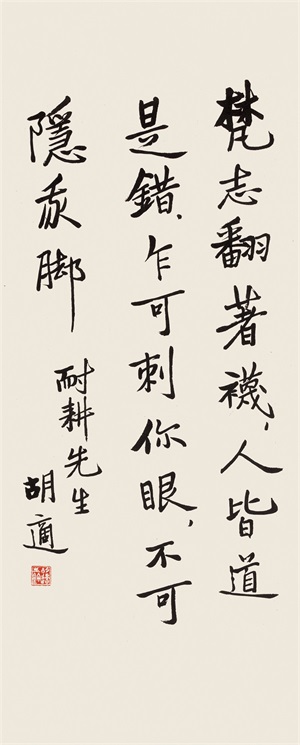 梵志翻著襪，人皆道
是錯、乍可刺你眼，不可
隱我脚
耐耕先生
胡適